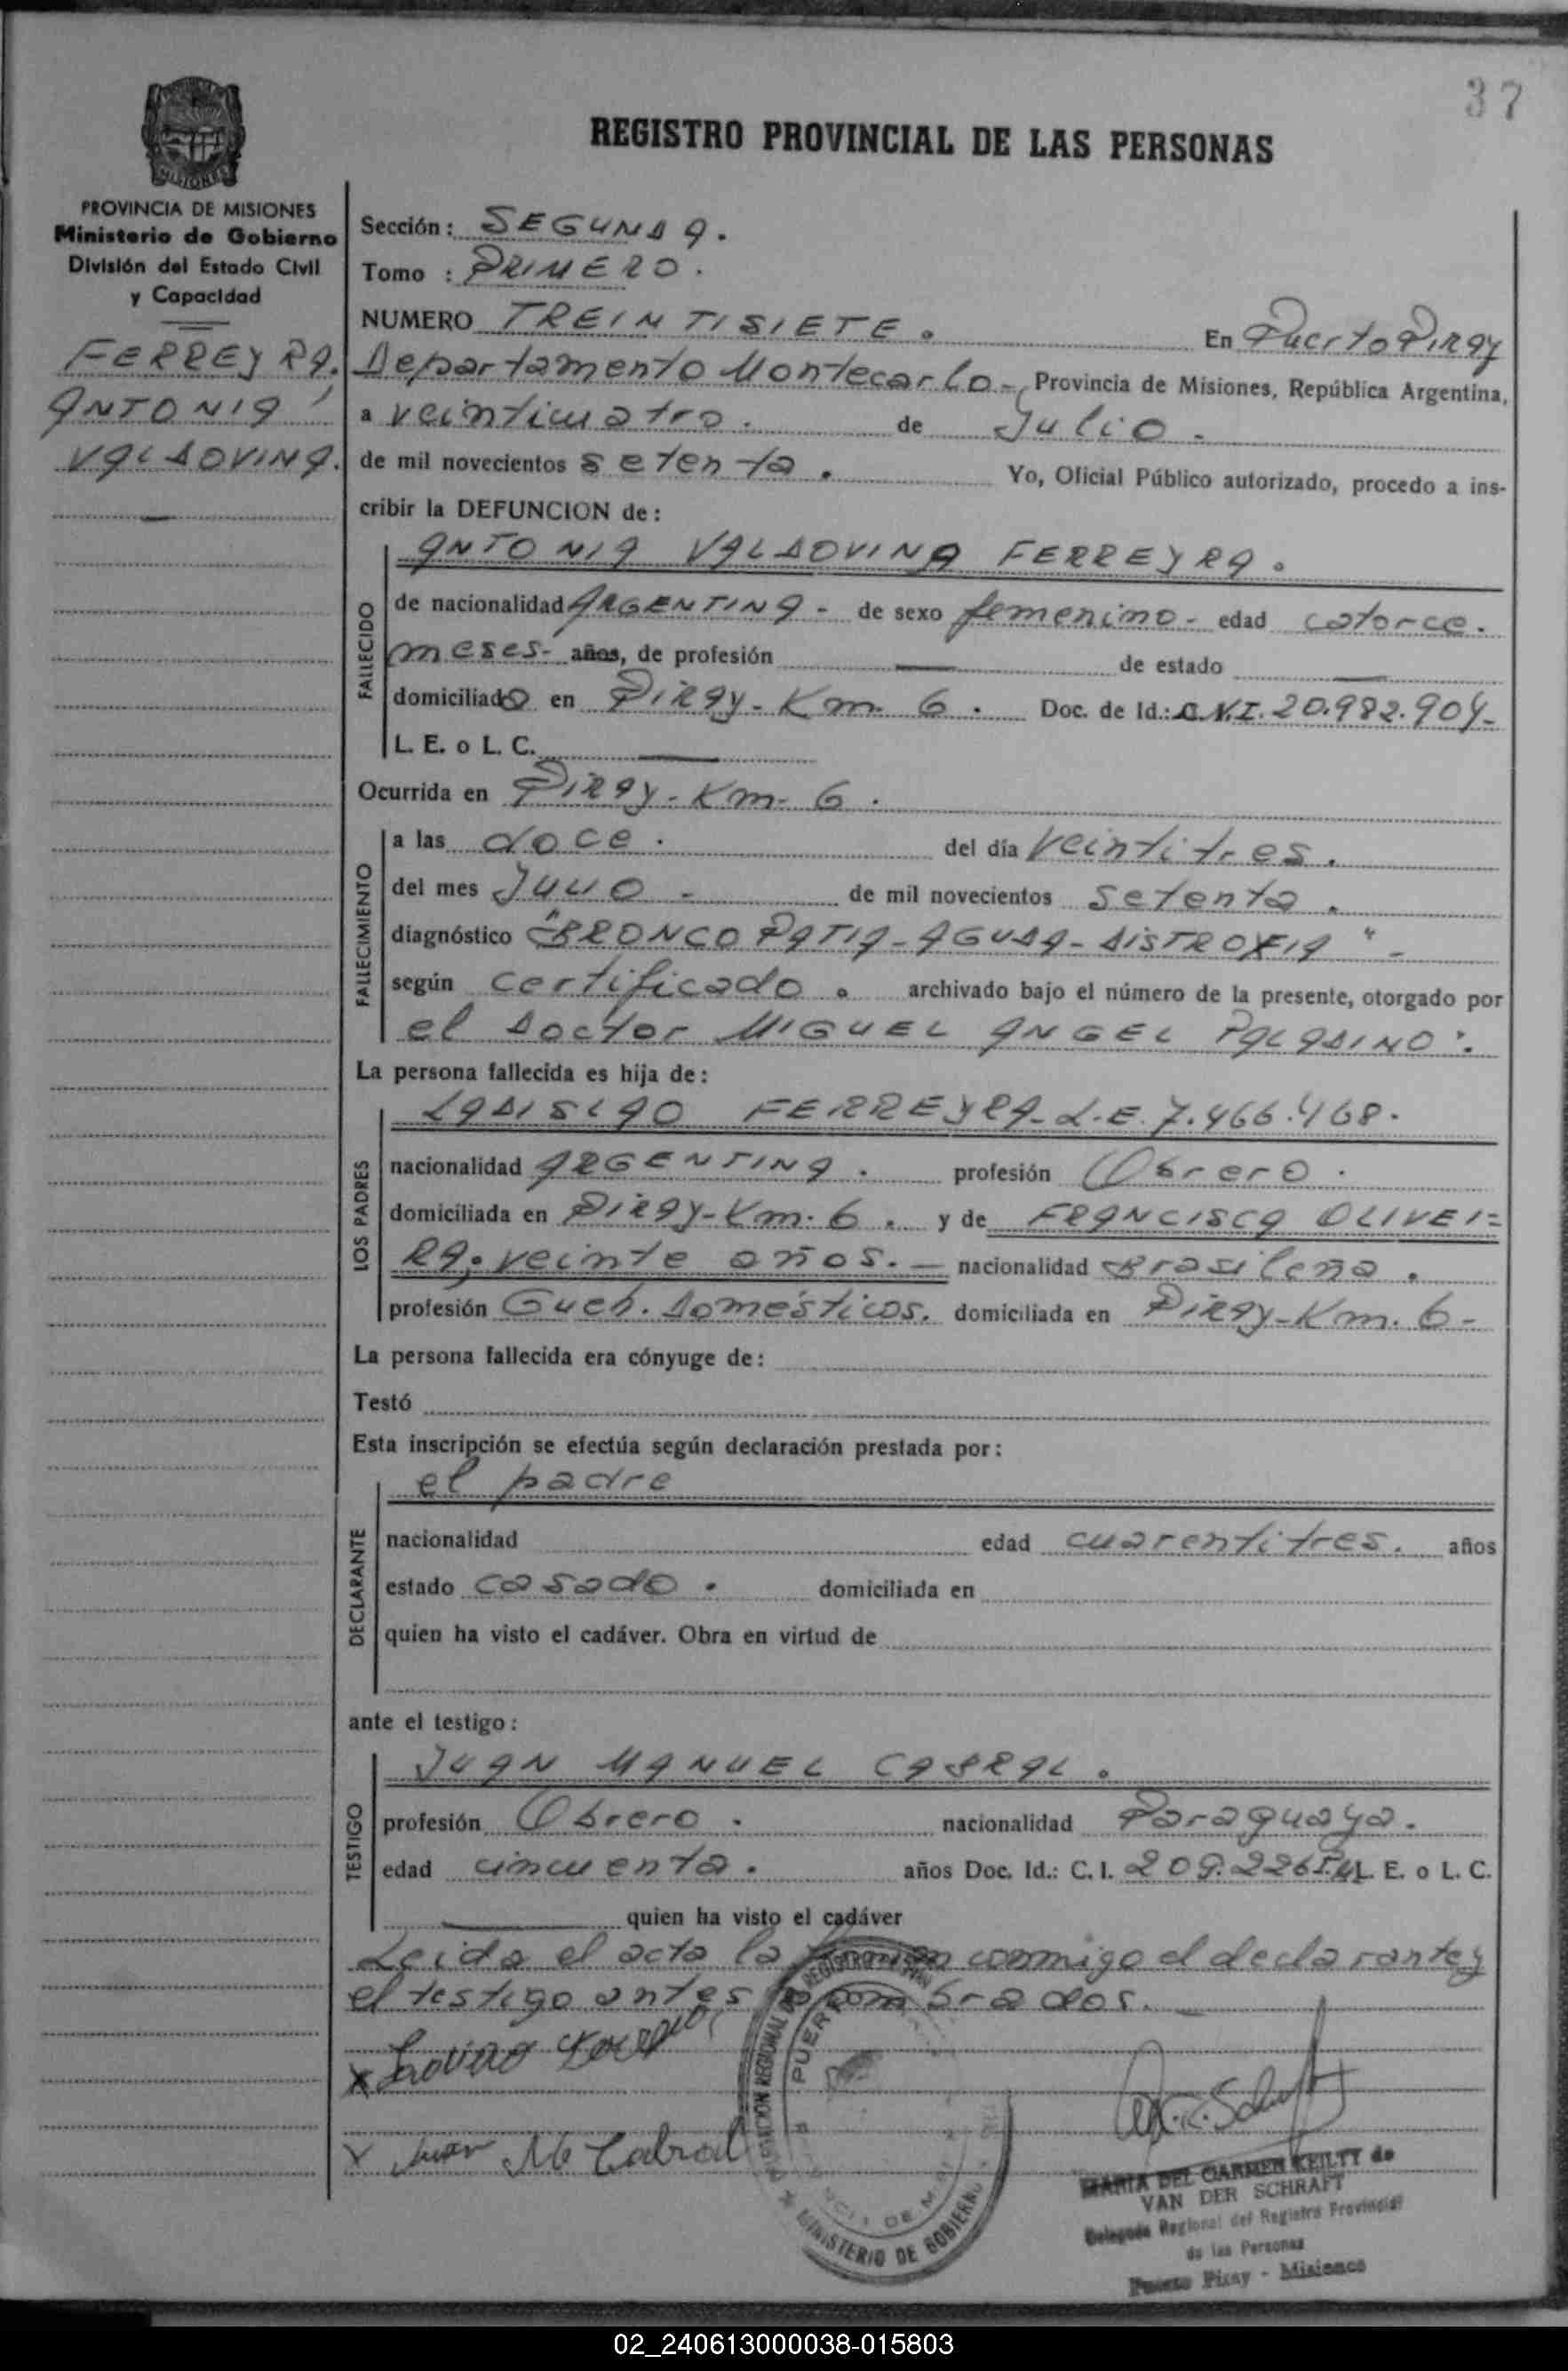 37
REGISTRO PROVINCIAL DE LAS PERSONAS
MISIONES
PROVINCIA DE MISIONES
Ministerio de Gobierno
División del Estado Civil
y Capacidad
FERREYRA.
ANTONIA
VALDOVINA.
Sección: SEGUNDA.
Tomo : PRIMERO.
NUMERO TREINTISIETE. En Puerto Piray
Departamento Montecarlo- Provincia de Misiones, República Argentina,
a veinticuatro. de Julio.
de mil novecientos setenta. Yo, Oficial Público autorizado, procedo a ins-
cribir la DEFUNCION de:
FALLECIDO
ANTONIA VALDOVINA FERREYRA.
de nacionalidad ARGENTINA- de sexo femenino- edad catorce.
meses- años, de profesión — de estado —
domiciliado en PIRAY-Km. 6. Doc. de Id.: C.N.I. 20.982.904-
L. E. o L. C. —
Ocurrida en PIRAY-Km- 6.
FALLECIMIENTO
a las doce. del día veintitres.
del mes JULIO- de mil novecientos setenta.
diagnóstico "BRONCOPATIA-AGUDA-DISTROFIA"-
según certificado. archivado bajo el número de la presente, otorgado por
el Doctor MIGUEL ANGEL PALADINO:
La persona fallecida es hija de:
LOS PADRES
LADISLAO FERREYRA-L.E. 7.466.468-
nacionalidad ARGENTINA. profesión Obrero.
domiciliada en PIRAY-Km. 6. y de FRANCISCA OLIVEI=
RA. veinte años.- nacionalidad Brasileña.
profesión Queh. Domésticos. domiciliada en PIRAY-Km. 6-
La persona fallecida era cónyuge de:
Testó
Esta inscripción se efectúa según declaración prestada por:
DECLARANTE
el padre
nacionalidad edad cuarentitres. años
estado casado. domiciliada en
quien ha visto el cadáver. Obra en virtud de
ante el testigo:
TESTIGO
JUAN MANUEL CABRAL.
profesión Obrero. nacionalidad Paraguaya.
edad cincuenta. años Doc. Id.: C. I. L. E. o L. C.
— quien ha visto el cadáver
Leida el acta la firman conmigo el declarante y
el testigo antes nombrados.-
x
x Juan M Cabral
REGISTRO
MINISTERIO DE GOBIERNO
MARIA DEL CARMEN KEILTY de
VAN DER SCHRAFT
Delegada Regional del Registro Provincial
de las Personas
Puerto Piray - Misiones
02_240613000038-015803